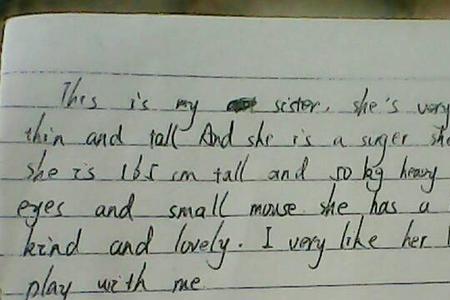 This is my sister. she's very
thin and tall And she is a suger she
she is 165 cm tall and 50 kg heavy
eyes and small mouse she has a
kind and lovely. I very like her
play with me